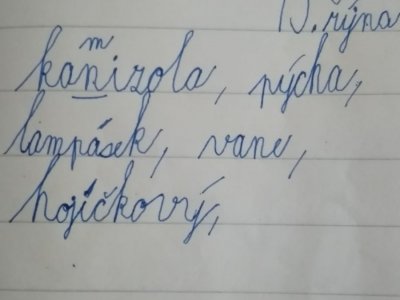 13. října
kamizola, pýcha,
lampásek, vane,
hojíčkový,